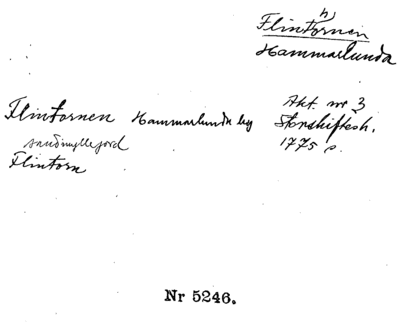 h
Flintornen
Hammarlunda
Flintornen Hammarlunda by Akt. nr 3
sandmyllejord Storskiftesh.
Flintorn 1775 s.
Nr 5246.